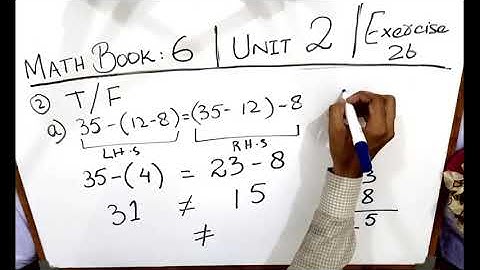 MATH BOOK: 6 | UNIT 2 | Exercise 2b
② T/F
a) 35-(12-8)=(35-12)-8
L.H.S R.H.S
35-(4) = 23-8
31 ≠ 15
≠
3
8
5